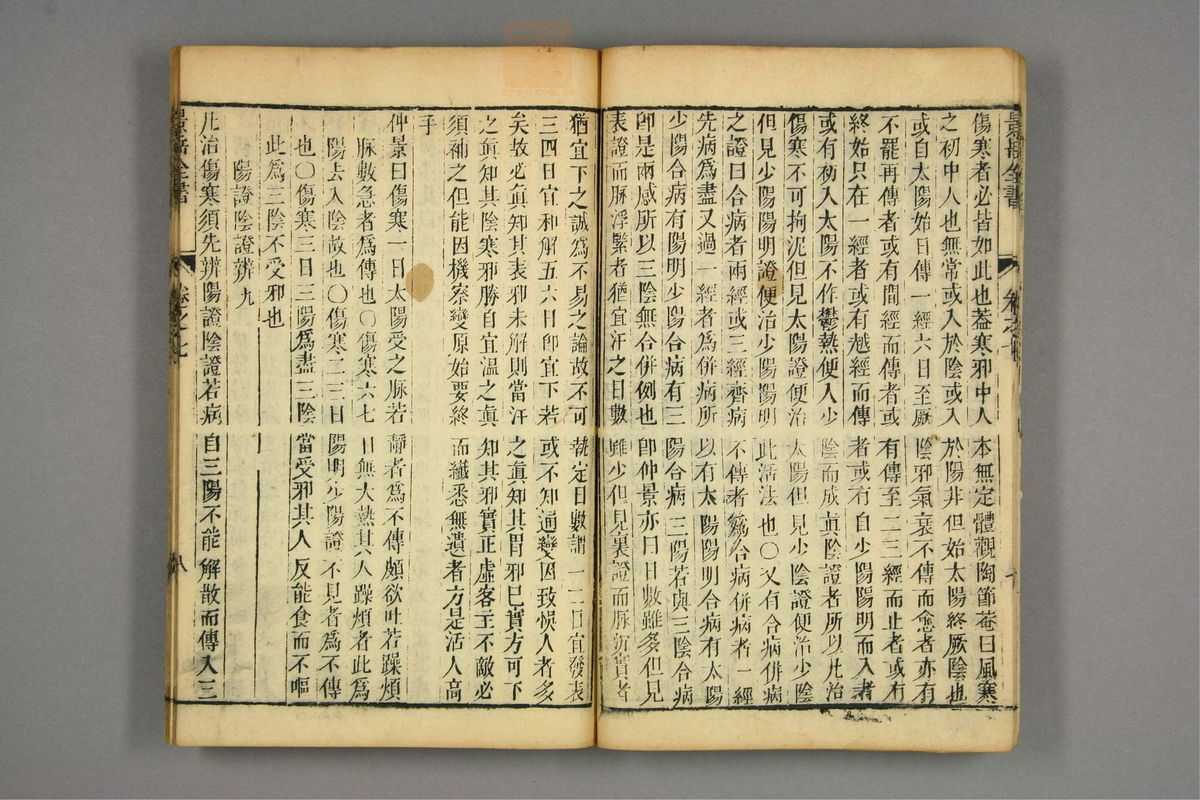 景岳全書
卷之七
傷寒者必皆如此也蓋寒邪中人本無定體觀陶節菴曰風寒
之初中人也無常或入於陰或入於陽非但始太陽終厥陰也
或自太陽始日傳一經六日至厥陰邪氣衰不傳而愈者亦有
不罷再傳者或有間經而傳者或有傳至二三經而止者或有
終始只在一經者或有越經而傳者或有自少陽陽明而入者
或有初入太陽不作鬱熱便入少陰而成眞陰證者所以凡治
傷寒不可拘泥但見太陽證便治太陽但見少陰證便治少陰
但見少陽陽明證便治少陽陽明此活法也〇又有合病併病
之證曰合病者兩經或三經齊病不傳者爲合病併病者一經
先病爲盡又過一經者爲併病所以有太陽陽明合病有太陽
少陽合病有陽明少陽合病有三陽合病三陽若與三陰合病
卽是兩感所以三陰無合併例也卽仲景亦曰日數雖多但見
表證而脉浮緊者猶宜汗之日數雖少但見裏證而脉沉實者
猶宜下之誠爲不易之論故不可執定日數謂一二日宜發表
三四日宜和解五六日卽宜下若或不知通變因致悞人者多
矣故必眞知其表邪未解則當汗之眞知其胃邪已實方可下
之眞知其陰寒邪勝自宜溫之眞知其邪實正虛客主不敵必
須補之但能因機察變原始要終而纖悉無遺者方是活人高
手
仲景曰傷寒一日太陽受之脉若靜者爲不傳頗欲吐若躁煩
脉數急者爲傳也〇傷寒六七日無大熱其人躁煩者此爲
陽去入陰故也〇傷寒二三日陽明少陽證不見者爲不傳
也〇傷寒三日三陽爲盡三陰當受邪其人反能食而不嘔
此爲三陰不受邪也
陽證陰證辨九
凡治傷寒須先辨陽證陰證若病自三陽不能解散而傳入三
景岳全書
卷之七
八